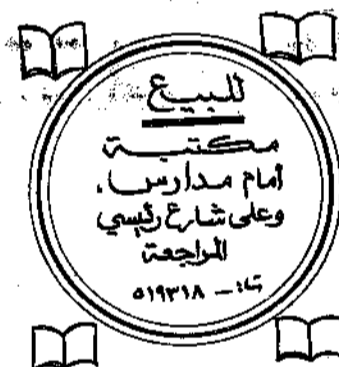 للبيع
مكتبة
أمام مدارس.
وعلى شارع رئيسي
المراجعة
ت:- ٥١٩٣١٨